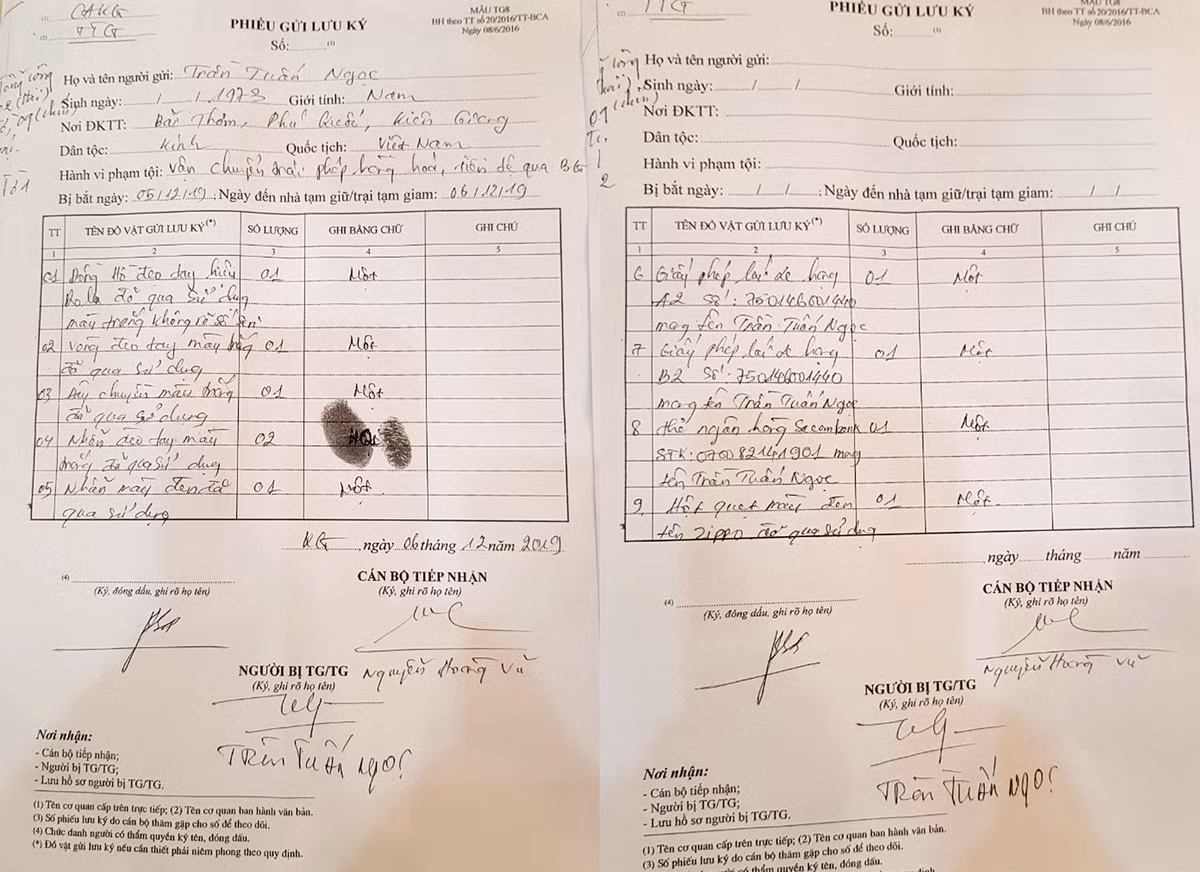 (1) CAKG
(2) TTG
PHIẾU GỬI LƯU KÝ
Số: (3)
MẪU TG8
BH theo TT số 20/2016/TT-BCA
Ngày 08/6/2016
Họ và tên người gửi: Trần Tuấn Ngọc
Sinh ngày: / / 1973 Giới tính: Nam
Nơi ĐKTT: Phú Quốc, Kiên Giang
Dân tộc: Kinh Quốc tịch: Việt Nam
Hành vi phạm tội: Vận chuyển trái phép hàng hoá, tiền tệ qua BG
Bị bắt ngày: 05/12/19; Ngày đến nhà tạm giữ/trại tạm giam: 06/12/19
TT TÊN ĐỒ VẬT GỬI LƯU KÝ(*) SỐ LƯỢNG GHI BẰNG CHỮ GHI CHÚ
1 2 3 4 5
01 Đồng hồ đeo tay hiệu 01 Một
đã qua sử dụng
màu trắng không rõ số
02 Vòng đeo tay màu trắng 01 Một
đã qua sử dụng
03 Dây chuyền màu trắng 01 Một
đã qua sử dụng
04 Nhẫn đeo tay màu 02 Hai
trắng đã qua sử dụng
05 Nhẫn màu đen đã 01 Một
qua sử dụng
KG, ngày 06 tháng 12 năm 2019
(4)
(Ký, đóng dấu, ghi rõ họ tên)
CÁN BỘ TIẾP NHẬN
(Ký, ghi rõ họ tên)
Nguyễn Hoàng Vũ
NGƯỜI BỊ TG/TG
(Ký, ghi rõ họ tên)
TRẦN TUẤN NGỌC
Nơi nhận:
- Cán bộ tiếp nhận;
- Người bị TG/TG;
- Lưu hồ sơ người bị TG/TG.
(1) Tên cơ quan cấp trên trực tiếp; (2) Tên cơ quan ban hành văn bản.
(3) Số phiếu lưu ký do cán bộ thăm gặp cho số để theo dõi.
(4) Chức danh người có thẩm quyền ký tên, đóng dấu.
(*) Đồ vật gửi lưu ký nếu cần thiết phải niêm phong theo quy định.
(2) TTG
PHIẾU GỬI LƯU KÝ
Số: (3)
MẪU TG8
BH theo TT số 20/2016/TT-BCA
Ngày 08/6/2016
Họ và tên người gửi:
Sinh ngày: / / Giới tính:
Nơi ĐKTT:
Dân tộc: Quốc tịch:
Hành vi phạm tội:
Bị bắt ngày: / / ; Ngày đến nhà tạm giữ/trại tạm giam: / /
TT TÊN ĐỒ VẬT GỬI LƯU KÝ(*) SỐ LƯỢNG GHI BẰNG CHỮ GHI CHÚ
1 2 3 4 5
6 Giấy phép lái xe hạng 01 Một
A2 Số: 750146001440
mang tên Trần Tuấn Ngọc
7 Giấy phép lái xe hạng 01 Một
B2 Số: 750146001440
mang tên Trần Tuấn Ngọc
8 thẻ ngân hàng Sacombank 01 Một
STK: 070082141901 mang
tên Trần Tuấn Ngọc
9 Hột quẹt màu đen 01 Một
tên Zippo đã qua sử dụng
, ngày tháng năm
(4)
(Ký, đóng dấu, ghi rõ họ tên)
CÁN BỘ TIẾP NHẬN
(Ký, ghi rõ họ tên)
Nguyễn Hoàng Vũ
NGƯỜI BỊ TG/TG
(Ký, ghi rõ họ tên)
TRẦN TUẤN NGỌC
Nơi nhận:
- Cán bộ tiếp nhận;
- Người bị TG/TG;
- Lưu hồ sơ người bị TG/TG.
(1) Tên cơ quan cấp trên trực tiếp; (2) Tên cơ quan ban hành văn bản.
(3) Số phiếu lưu ký do cán bộ thăm gặp cho số để theo dõi.